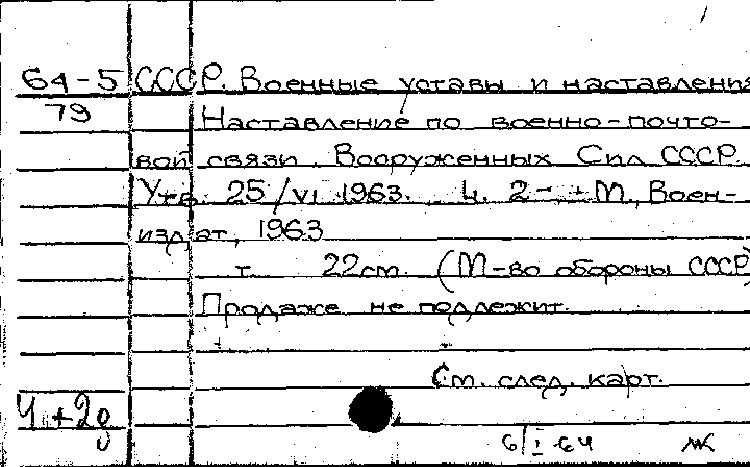 64-5 СССР. Военные уставы и наставления
79 Наставление по военно-почто-
вой связи Вооруженных Сил СССР.
Утв. 25/VI 1963. Ч. 2- М., Воен-
издат, 1963
т. 22см. (М-во обороны СССР)
Продаже не подлежит.
См. след. карт.
4+2д
6/I 64